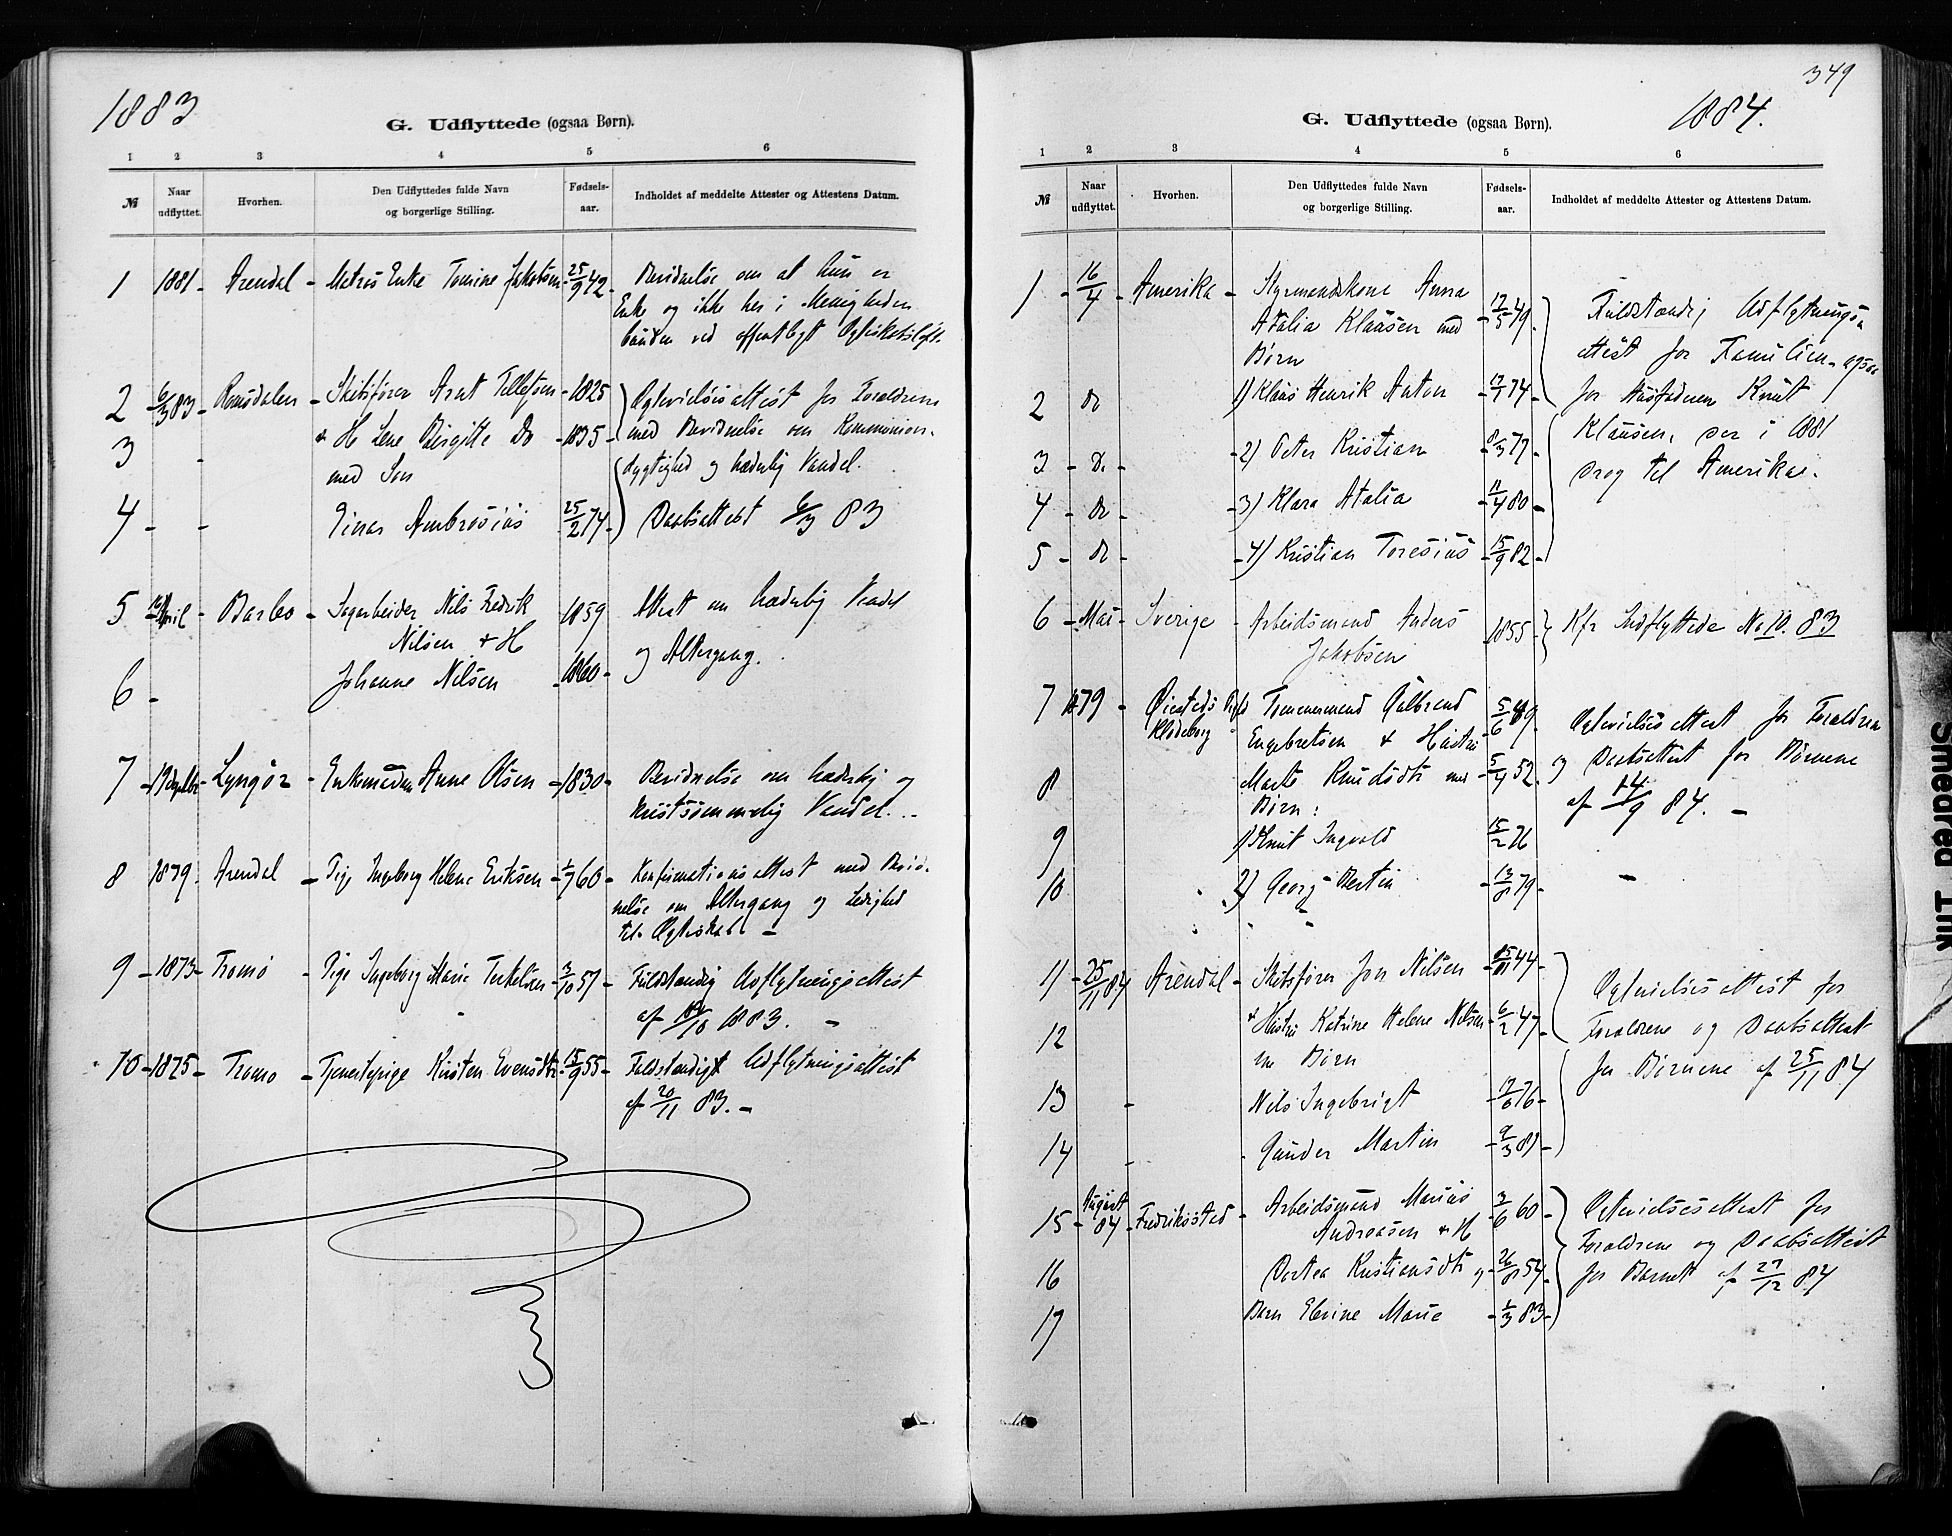 1883
G. Udflyttede (ogsaa Børn).
1 2 3 4 5 6
№ Naar udflyttet. Hvorhen. Den Udflyttedes fulde Navn og borgerlige Stilling. Fødselsaar. Indholdet af meddelte Attester og Attestens Datum.
1 1881 - Arendal - Matros Enke Tomine Jakobsen 25/9 42 - Bevidnelse om at hun er
Enke og ikke her i Menigheden
bunden ved offentligt
2 6/3 83 - Romsdalen - Skibsfører Arnt Tellefsen - 1825 Ægtevielsesattest for Forældrene
3 - + H Lene Birgitte Do - 1835 - med Bevidnelse om Kommunion-
med Søn dygtighed og hæderlig Vandel.
4 - - Einar Ambrosius 25/2 74 - Daabsattest 6/3 83
5 April - Barbo - Jernarbeider Nils Fredrik 1859 Attest om hæderlig Vandel
Nilsen + H og Altergang.
6 - Johanne Nilsen - 1860 -
7 - - Lyngør - Enkemadam Anne Olsen - 1830 - Bevidnelse om hæderlig og
kristsømmelig Vandel. -
8 1879. Arendal - Pige Ingeborg Helene Eriksen - 1/7 60 - Konfirmationsattest med Bevid-
nelse om Altergang og Ledighed
til Ægteskab. -
9 - 1873 - Tromø - Pige Ingeborg Marie Terkelsen - 3/10 57 - Fuldstændig Udflytningsattest
af 1883. -
10 - 1875 - Tromø - Tjenestepige Kirsten Evensdtr. 15/9 55 - Fuldstændigt Udflytningsattest
af 20/11 83. -
349
1884.
G. Udflyttede (ogsaa Børn).
1 2 3 4 5 6
№ Naar udflyttet. Hvorhen. Den Udflyttedes fulde Navn og borgerlige Stilling. Fødselsaar. Indholdet af meddelte Attester og Attestens Datum.
1 - 16/4 - Amerika - Styrmandskone Anna
Atalia Klausen med - 17/5 49 - Fuldstændig Udflytnings-
Børn attest for Familien - ogsaa
2 Do 1) Klaus Henrik Anton - 17/7 74 - for Husfaderen Knut
Klausen, der i 1881
3 - Do - - 2) Peter Kristian 8/3 77 - drog til Amerika.
4 - Do - - 3) Klara Atalia 11/4 80 -
5 - Do - - 4) Kristian Toresius - 15/9 82 -
6 - Mai - Sverige - Arbeidsmand Anders 1855 Kfr Indflyttede No 10. 83
Jakobsen
7 1879 - Øiesteds Præstg Tømmermand Gulbrand 5/6 49. Ægtevielsesattest for Forældrene
Klødeborg Engebretsen + Hustru
8 Marte Knudsdtr med 5/4 52. og Daabsattest for Børnene
Børn: af 14/9 84. -
9 1) Knut Ingvald 15/2 76
10 2) Georg Bertin - 13/8 79 - -
11 - 25/11 84 Arendal - Skibsfører Jon Nilsen - 15/11 44 - Ægtevielsesattest for
12 + Hustru Katrine Helene Nilsen - 6/2 47 - Forældrene og Daabsattest
m Børn for Børnene af 25/11 84
13 - Nils Ingebrigt - 76 -
14 - Gunder Martin - 9/3 81 -
15 - August 84 - Fredriksstad - Arbeidsmand Marius 3/6 60 - Ægtevielsesattest for
Andreasen + H Forældrene og Daabsattest
16 Dortea Kristiansdtr og - 26/8 54 - for Barnet af 27/12 84
17 Barn Elevine Marie - 1/3 83 -
Snødred Ink